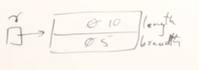 r
0 10 length
0 5 breadth